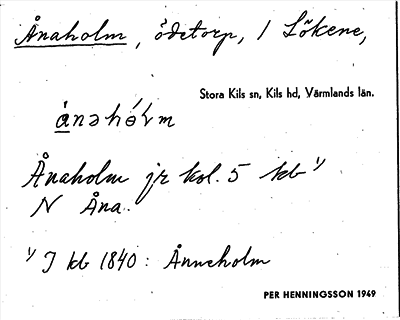 Ånaholm, ödetorp, / Lökene,
Stora Kils sn, Kils hd, Värmlands län.
Ånaholm jr kol. 5 kb ¹/
N Åna.
¹/ I kb 1840: Ånneholm
PER HENNINGSSON 1949